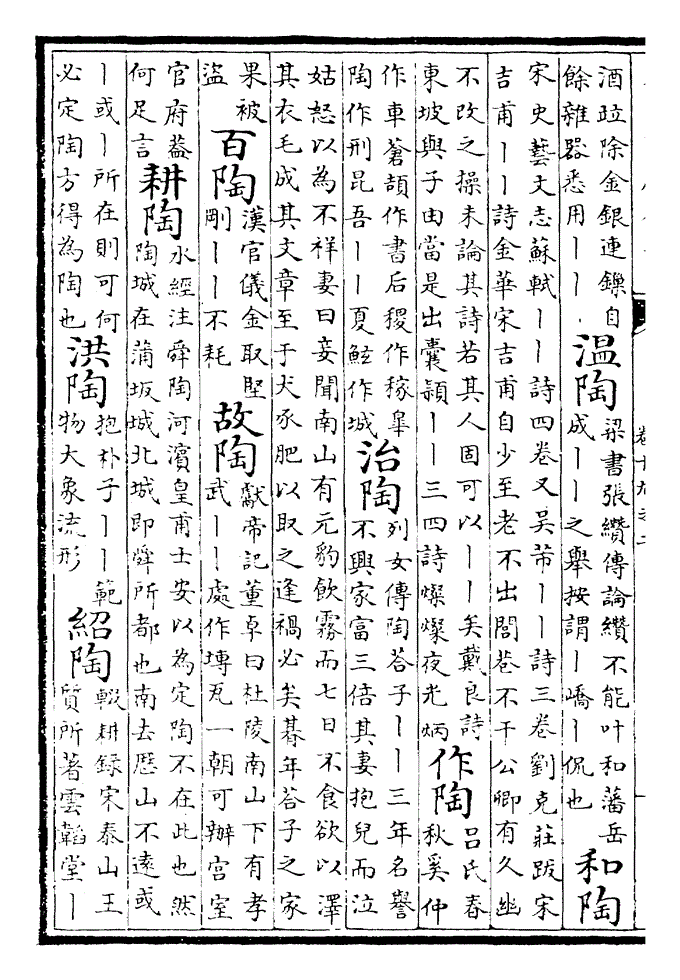 酒䟫除金銀連鏁自
餘雜器悉用丨丨
溫陶
梁書張纘傳論纘不能叶和藩岳
成丨丨之舉按謂丨嶠丨侃也
和陶
宋史藝文志蘇軾丨丨詩四卷又吳芾丨丨詩三卷劉克莊跋宋
吉甫丨丨詩金華宋吉甫自少至老不出閭巷不干公卿有久幽
不改之操未論其詩若其人固可以丨丨矣戴良詩
東坡與子由當是出囊穎丨丨三四詩燦燦夜光炳
作陶
呂氏春
秋奚仲
作車蒼頡作書后稷作稼皋
陶作刑昆吾丨丨夏鮌作城
治陶
列女傳陶荅子丨丨三年名譽
不興家富三倍其妻抱兒而泣
姑怒以為不祥妻曰妾聞南山有元豹飲霧而七日不食欲以澤
其衣毛成其文章至于犬豕肥以取之逢禍必矣朞年荅子之家
果被
盜
百陶
漢官儀金取堅
剛丨丨不耗
故陶
獻帝記董卓曰杜陵南山下有孝
武丨丨處作塼瓦一朝可辦宫室
官府葢
何足言
耕陶
水經注舜陶河濱皇甫士安以為定陶不在此也然
陶城在蒲坂城北城即舜所都也南去歷山不遠或
丨或丨所在則可何
必定陶方得為陶也
洪陶
抱朴子丨丨範
物大象流形
紹陶
輟耕録宋泰山王
質所著雲韜堂丨